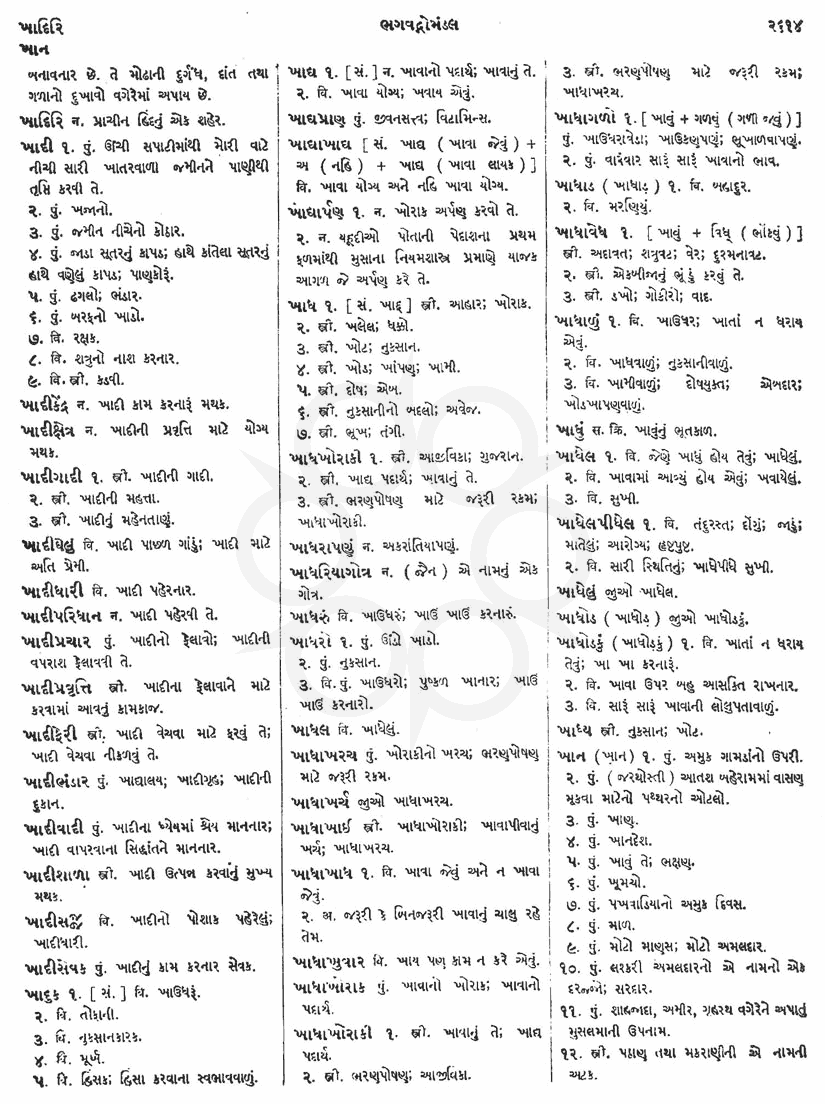 ખાદિરિ
ખાન
ભગવદ્ગોમંડલ
૨૬૧૪
બનાવનાર છે. તે મોઢાની દુર્ગંધ, દાંત તથા
ગળાનો દુખાવો વગેરેમાં અપાય છે.
ખાદિરિ ન. પ્રાચીન હિંદનું એક શહેર.
ખાદી ૧. પું. ઊંચી સપાટીમાંથી મોરી વાટે
નીચી સારી ખાતરવાળી જમીનને પાણીથી
તૃપ્તિ કરવી તે.
૨. પું. ખજાનો.
૩. પું. જમીન નીચેનો કોઠાર.
૪. પું. જાડા સૂતરનું કાપડ; હાથે કાંતેલા સૂતરનું
હાથે વણેલું કાપડ; પાણકોરૂં.
૫. પું. ઢગલો; ભંડાર.
૬. પું. બરફનો ખાડો.
૭. વિ. રક્ષક.
૮. વિ. શત્રુનો નાશ કરનાર.
૯. વિ. સ્ત્રી. કડવી.
ખાદીકેંદ્ર ન. ખાદી કામ કરનારૂં મથક.
ખાદીક્ષેત્ર ન. ખાદીની પ્રવૃત્તિ માટે યોગ્ય
મથક.
ખાદીગાદી ૧. સ્ત્રી. ખાદીની ગાદી.
૨. સ્ત્રી. ખાદીની મહત્તા.
૩. સ્ત્રી. ખાદીનું મહેનતાણું.
ખાદીઘેલું વિ. ખાદી પાછળ ગાંડું; ખાદી માટે
અતિ પ્રેમી.
ખાદીધારી વિ. ખાદી પહેરનાર.
ખાદીપરિધાન ન. ખાદી પહેરવી તે.
ખાદીપ્રચાર પું. ખાદીનો ફેલાવો; ખાદીની
વપરાશ ફેલાવવી તે.
ખાદીપ્રવૃત્તિ સ્ત્રી. ખાદીના ફેલાવાને માટે
કરવામાં આવતું કામકાજ.
ખાદીફેરી સ્ત્રી. ખાદી વેચવા માટે ફરવું તે;
ખાદી વેચવા નીકળવું તે.
ખાદીભંડાર પું. ખાદ્યાલય; ખાદીગૃહ; ખાદીની
દુકાન.
ખાદીવાદી પું. ખાદીના ધ્યેયમાં શ્રેય માનનાર;
ખાદી વાપરવાના સિદ્ધાંતને માનનાર.
ખાદીશાળા સ્ત્રી. ખાદી ઉત્પન્ન કરવાનું મુખ્ય
મથક.
ખાદીસજ્જ વિ. ખાદીનો પોશાક પહેરેલું;
ખાદીધારી.
ખાદીસેવક પું. ખાદીનું કામ કરનાર સેવક.
ખાદુક ૧. [ સં. ] વિ. ખાઉધરૂં.
૨. વિ. તોફાની.
૩. વિ. નુકસાનકારક.
૪. વિ. મૂર્ખ.
૫. વિ. હિંસક; હિંસા કરવાના સ્વભાવવાળું.
ખાદ્ય ૧. [ સં. ] ન. ખાવાનો પદાર્થ; ખાવાનું તે.
૨. વિ. ખાવા યોગ્ય; ખવાય એવું.
ખાદ્યપ્રાણ પું. જીવનસત્ત્વ; વિટામિન્સ.
ખાદ્યાખાદ્ય [ સં. ખાદ્ય ( ખાવા જેવું ) +
અ ( નહિ ) + ખાદ્ય ( ખાવા લાયક ) ]
વિ. ખાવા યોગ્ય અને નહિ ખાવા યોગ્ય.
ખાદ્યાર્પણ ૧. ન. ખોરાક અર્પણ કરવો તે.
૨. ન. યહૂદીઓ પોતાની પેદાશના પ્રથમ
ફળમાંથી મુસાના નિયમશાસ્ત્ર પ્રમાણે યાજક
આગળ જે અર્પણ કરે તે.
ખાધ ૧. [ સં. ખાદ્ ] સ્ત્રી. આહાર; ખોરાક.
૨. સ્ત્રી. ખલેલ; ધક્કો.
૩. સ્ત્રી. ખોટ; નુકસાન.
૪. સ્ત્રી. ખોડ; ખાંપણ; ખામી.
૫. સ્ત્રી. દોષ; એબ.
૬. સ્ત્રી. નુકસાનીનો બદલો; અવેજ.
૭. સ્ત્રી. ભૂખ; તંગી.
ખાધખોરાકી ૧. સ્ત્રી. આજીવિકા; ગુજરાન.
૨. સ્ત્રી. ખાદ્ય પદાર્થ; ખાવાનું તે.
૩. સ્ત્રી. ભરણપોષણ માટે જરૂરી રકમ;
ખાધાખોરાકી.
ખાધરાપણું ન. અકરાંતિયાપણું.
ખાધરિયાગોત્ર ન. ( જૈન ) એ નામનું એક
ગોત્ર.
ખાધરું વિ. ખાઉધરું; ખાઉં ખાઉં કરનારું.
ખાધરો ૧. પું. ઊંડો ખાડો.
૨. પું. નુકસાન.
૩. વિ. પું. ખાઉધરો; પુષ્કળ ખાનાર; ખાઉં
ખાઉં કરનારો.
ખાધલ વિ. ખાધેલું.
ખાધાખરચ પું. ખોરાકીનો ખરચ; ભરણપોષણ
માટે જરૂરી રકમ.
ખાધાખર્ચ જુઓ ખાધાખરચ.
ખાધાખાઈ સ્ત્રી. ખાધાખોરાકી; ખાવાપીવાનું
ખર્ચ; ખાધાખરચ.
ખાધાખાધ ૧. વિ. ખાવા જેવું અને ન ખાવા
જેવું.
૨. અ. જરૂરી કે બિનજરૂરી ખાવાનું ચાલુ રહે
તેમ.
ખાધાખુવાર વિ. ખાય પણ કામ ન કરે એવું.
ખાધાખોરાક પું. ખાવાનો ખોરાક; ખાવાનો
પદાર્થ.
ખાધાખોરાકી ૧. સ્ત્રી. ખાવાનું તે; ખાદ્ય
પદાર્થ.
૨. સ્ત્રી. ભરણપોષણ; આજીવિકા.
૩. સ્ત્રી. ભરણપોષણ માટે જરૂરી રકમ;
ખાધાખરચ.
ખાધાગળો ૧. [ ખાવું + ગળવું ( ગળી જવું ) ]
પું. ખાઉધરાવેડા; ખાઉકણપણું; ભૂખાળવાપણું.
૨. પું. વારંવાર સારૂં સારૂં ખાવાનો ભાવ.
ખાધાડ ( ખાધાડ઼ ) ૧. વિ. બહાદુર.
૨. વિ. મરણિયું.
ખાધાવેધ ૧. [ ખાવું + વિધ્ ( ભોંકવું ) ]
સ્ત્રી. અદાવત; શત્રુવટ; વેર; દુશ્મનાવટ.
૨. સ્ત્રી. એકબીજાનું ભૂંડું કરવું તે.
૩. સ્ત્રી. ડખો; ગોકીરો; વાદ.
ખાધાળું ૧. વિ. ખાઉધર; ખાતાં ન ધરાય
એવું.
૨. વિ. ખાધવાળું; નુકસાનીવાળું.
૩. વિ. ખામીવાળું; દોષયુક્ત; એબદાર;
ખોડખાપણવાળું.
ખાધું સ. ક્રિ. ખાવુંનું ભૂતકાળ.
ખાધેલ ૧. વિ. જેણે ખાધું હોય તેવું; ખાધેલું.
૨. વિ. ખાવામાં આવ્યું હોય એવું; ખવાયેલું.
૩. વિ. સુખી.
ખાધેલપીધેલ ૧. વિ. તંદુરસ્ત; દોંગું; જાડું;
માતેલું; આરોગ્ય; હૃષ્ટપુષ્ટ.
૨. વિ. સારી સ્થિતિનું; ખાધેપીધે સુખી.
ખાધેલું જુઓ ખાધેલ.
ખાધોડ ( ખાધોડ઼ ) જુઓ ખાધોડકું.
ખાધોડકું ( ખાધોડ઼કું ) ૧. વિ. ખાતાં ન ધરાય
તેવું; ખા ખા કરનારૂં.
૨. વિ. ખાવા ઉપર બહુ આસક્તિ રાખનાર.
૩. વિ. સારૂં સારૂં ખાવાની લોલુપતાવાળું.
ખાધ્ય સ્ત્રી. નુકસાન; ખોટ.
ખાન ( ખ઼ાન ) ૧. પું. અમુક ગામડાંનો ઉપરી.
૨. પું. ( જરથોસ્તી ) આતશ બહેરામમાં વાસણ
મૂકવા માટેનો પથ્થરનો ઓટલો.
૩. પું. ખાણ.
૪. પું. ખાનદેશ.
૫. પું. ખાવું તે; ભક્ષણ.
૬. પું. ખૂમચો.
૭. પું. પખવાડિયાનો અમુક દિવસ.
૮. પું. માળ.
૯. પું. મોટો માણસ; મોટો અમલદાર.
૧૦. પું. લશ્કરી અમલદારનો એ નામનો એક
દરજ્જો; સરદાર.
૧૧. પું. શાહજાદા, અમીર, ગૃહસ્થ વગેરેને અપાતું
મુસલમાની ઉપનામ.
૧૨. સ્ત્રી. પઠાણ તથા મકરાણીની એ નામની
અટક.